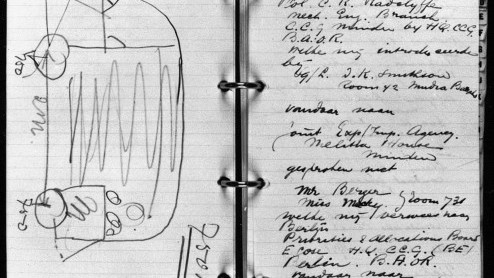 750
750
750
Col. C. R. Radclyffe
Mech. Eng. Branch
C.C.G. Minden by H.Q. C.C.G.
B.A.O.R.
Welke mij introduceerde
bij
Room 42
vandaar naar
Joint Exp/Imp. Agency.
Melitta House
Minden
gesproken met
Mr. Berger
Miss Room 731
welke mij verwees naar
Berlijn
Priorities & Allocations Board
Econ. H.Q. C.C.G. (BE)
Berlin. B.A.O.R.
vandaar naar